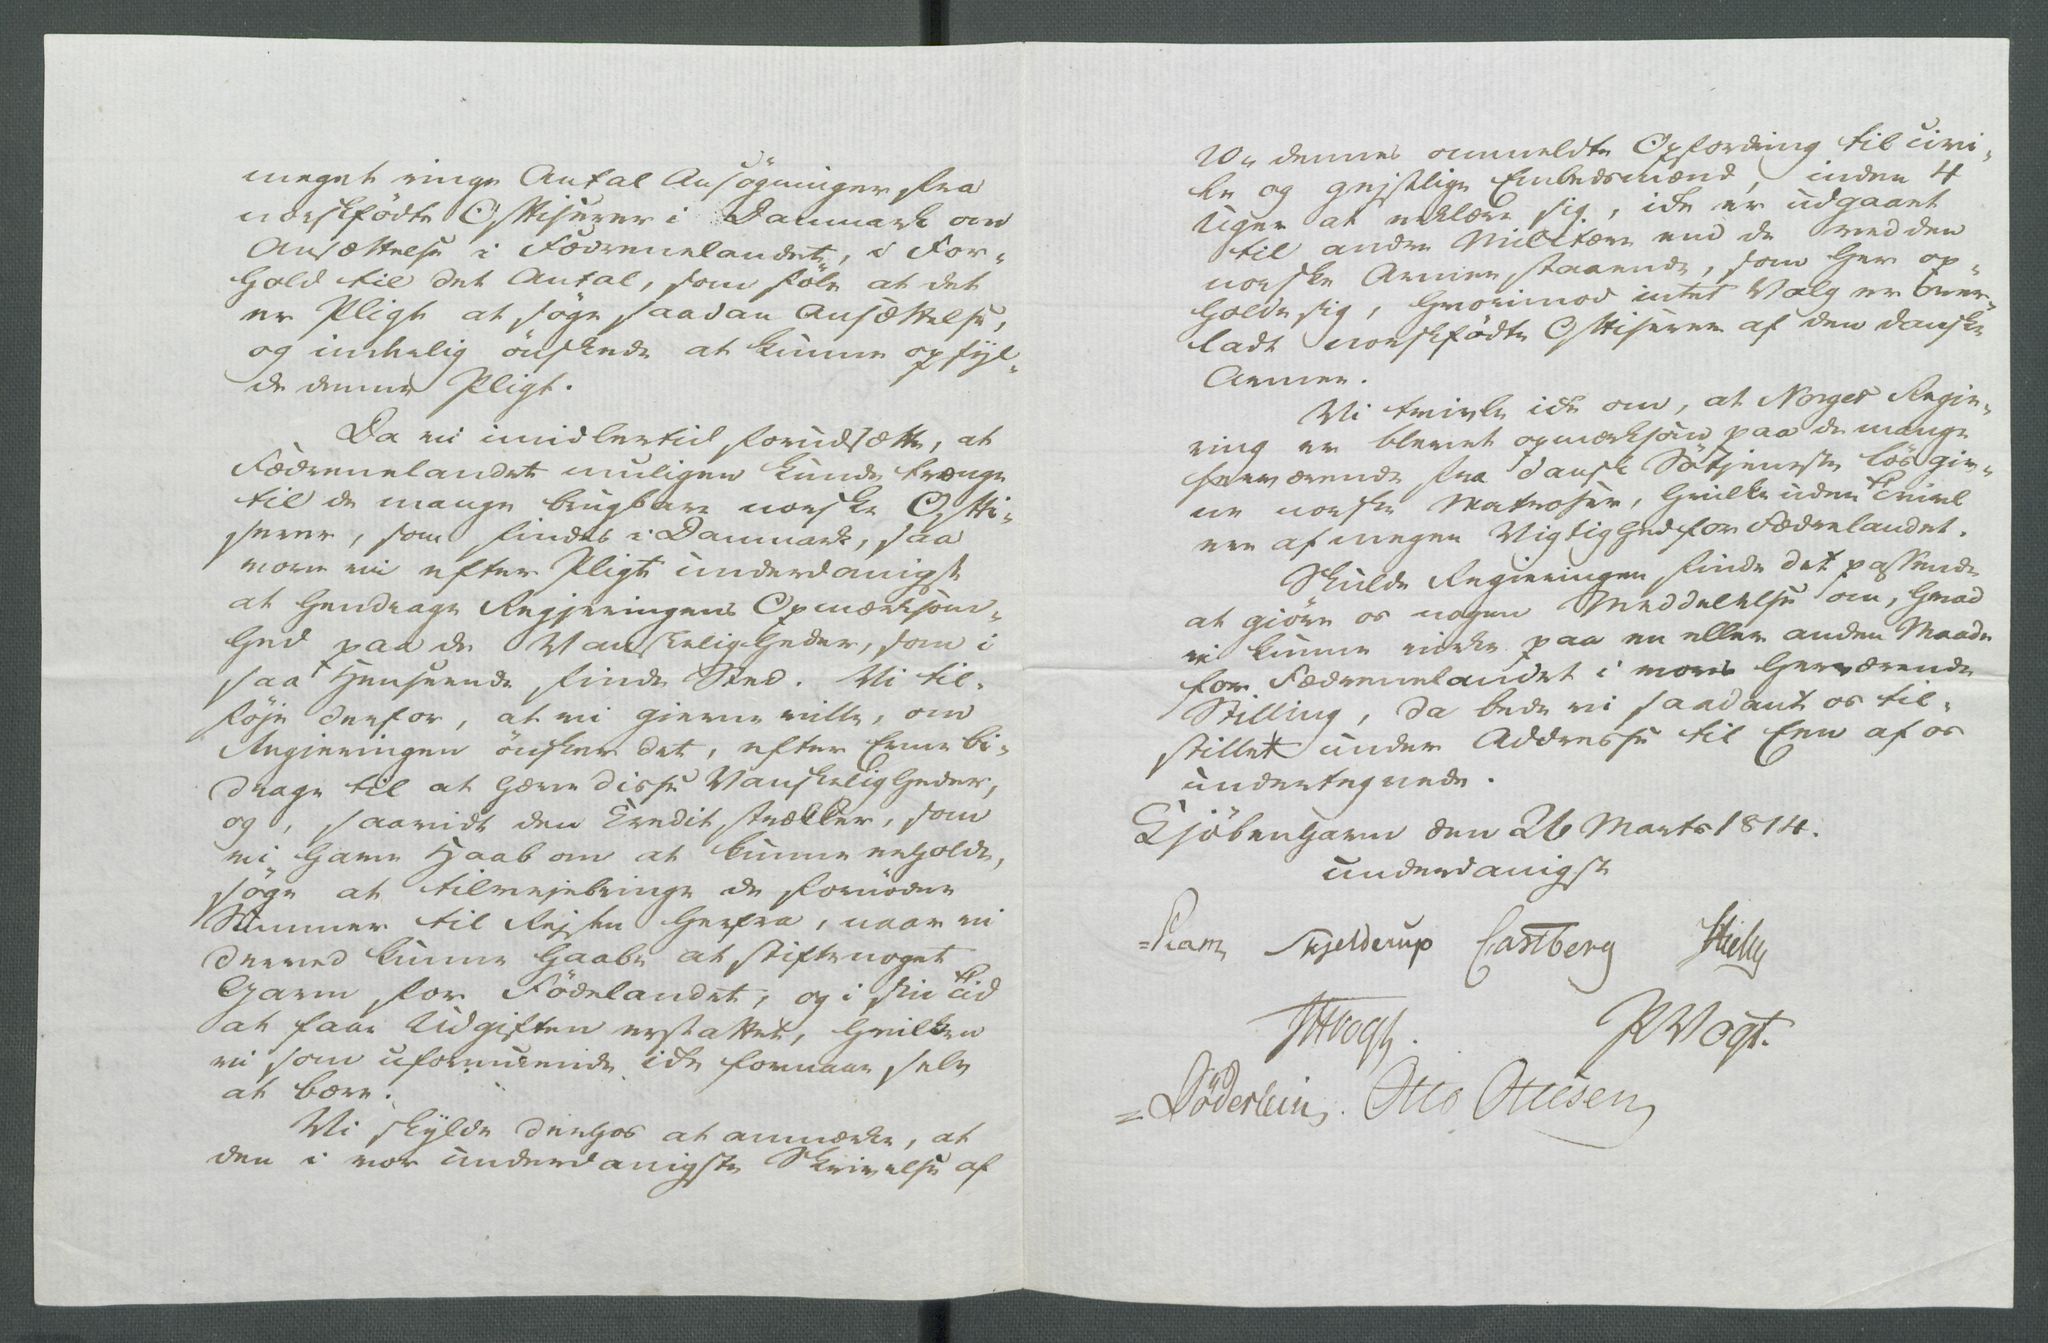 meget ringe Antal Ansögninger fra
norskfödte Officerer i Danmark om
Ansættelse i Fædrenelandet, i For-
hold til det Antal, som föle at det
er Pligt at söge saadan Ansættelse,
og inderlig önskede at kunne opfyl-
de denne Pligt.
Da vi imidlertid forudsætte, at
Fædrenelandet muligen kunde trænge
til de mange brugbare norske Offi-
cerer, som findes i Danmark, saa
vove vi efter Pligt underdanigst
at hendrage Regjeringens Opmærksom-
hed paa de Vanskeligheder, som i
saa Henseende finde Sted. Vi til-
föje derfor, at vi gierne ville, om
Regieringen önsker det, efter Evne bi-
drage til at hæve disse Vanskeligheder,
og, saavidt den Credit strækker, som
vi have Haab om at kunne erholde,
söge at tilvejebringe de fornödne
Summer til Rejsen herfra, naar vi
derved kunne haabe at stifte noget
Gavn for Födelandet, og i sin Tid
at faae Udgiften erstattet, hvilken
vi som uformuende ikke formaae selv
at bære.
Vi skylde derhos at anmærke, at
den i vor underdanigste Skrivelse af
20 dennes ommeldte Opfordring til civi-
le og gejstlige Embedsmænd, inden 4
Uger at erklære sig, ikke er udgaaet
til andre Militære end de ved den
norske Armee staaende, som her op-
holde sig, hvorimod intet Valg er over-
ladt norskfödte Officerer af den danske
Armee.
Vi tvivle ikke om, at Norges Regie-
ring er blevet opmærksom paa de mange
herværende fra dansk Sötjeneste lösgiv-
ne norske Matroser, hvilke uden Tvivl
ere af megen Vigtighed for Fædrelandet.
Skulde Regieringen finde det passende
at giöre os nogen Meddelelse om, hvad
vi kunne virke paa en eller anden Maade
for Fædrenelandet i vores herværende
Stilling, da bede vi saadant os til-
stillet under Addresse til Een af os
undertegnede.
Kjöbenhavn den 26 Marts 1814.
underdanigst
Pram Skjelderup Castberg
JHVogt. Vogt.
Döderlein. Otto Ottesen